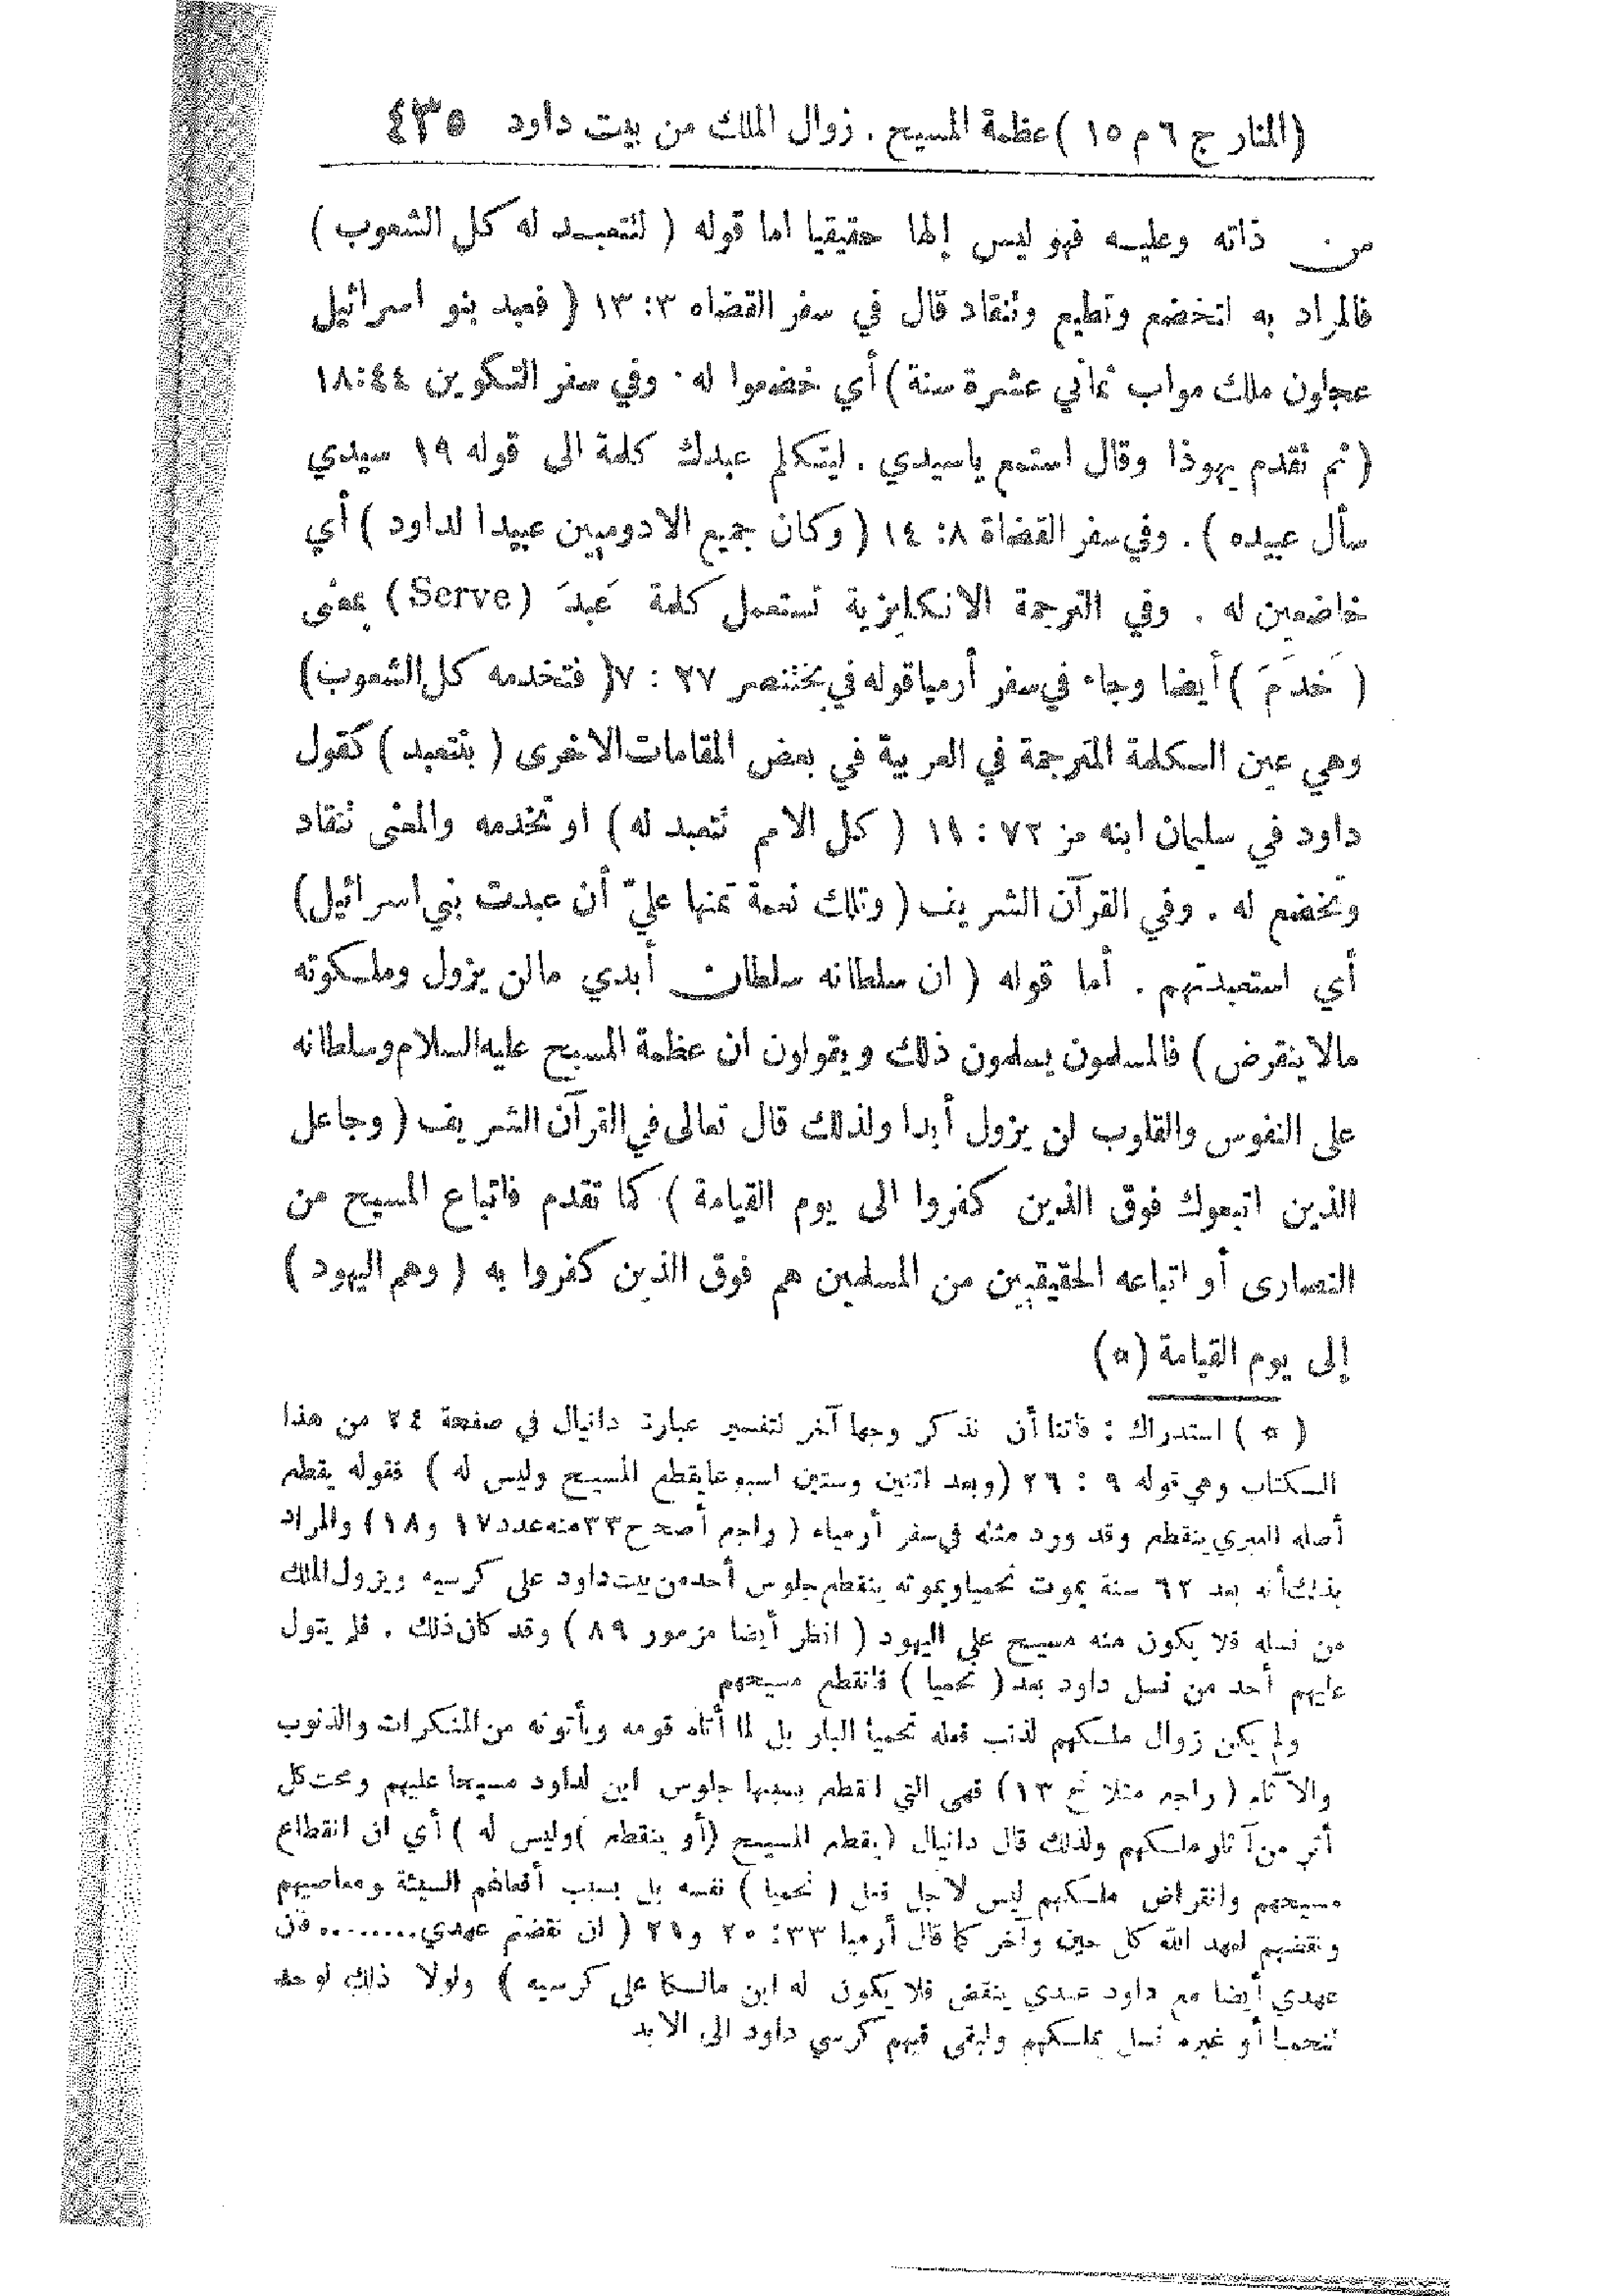 (المنار ج ٦ م ١٥ ) عظمة المسيح . زوال الملك من بيت داود ٤٣٥
من ذاته وعليه فهو ليس إلها حقيقيا اما قوله ( لتتعبد له كل الشعوب )
فالمراد به لتخضع وتطيع وتنقاد قال في سفر القضاه ٣ : ١٣ ( فعبد بنو اسرائيل
عجلون ملك مواب ثماني عشرة سنة ) أي خضعوا له . وفي سفر التكوين ٤٤ : ١٨
( ثم تقدم يهوذا وقال استمع ياسيدي . ليتكلم عبدك كلمة الى قوله ١٩ سيدي
سأل عبيده ) . وفي سفر القضاة ٨ : ١٤ ( وكان جميع الادوميين عبيدا لداود ) أي
خاضعين له . وفي الترجمة الانكليزية تستعمل كلمة عَبدَ (Serve) بمعنى
( خَدَمَ ) أيضا وجاء في سفر أرميا قوله في بختنصر ٢٧ : ٧ ( فتخدمه كل الشعوب )
وهي عين الكلمة المترجمة في العربية في بعض المقامات الاخرى ( بتتعبد ) كقول
داود في سليمان ابنه مز ٧٢ : ١١ ( كل الامم تتعبد له ) او تخدمه والمعنى تنقاد
وتخضع له . وفي القرآن الشريف ( وتلك نعمة تمنها عليّ أن عبدت بني اسرائيل )
أي استعبدتهم . أما قوله ( ان سلطانه سلطان أبدي مالن يزول وملكوته
مالا ينقرض ) فالمسلمون يسلمون ذلك ويقولون ان عظمة المسيح عليه السلام وسلطانه
على النفوس والقلوب لن يزول أبدا ولذلك قال تعالى في القرآن الشريف ( وجاعل
الذين اتبعوك فوق الذين كفروا الى يوم القيامة ) كما تقدم فاتباع المسيح من
النصارى أو اتباعه الحقيقيين من المسلمين هم فوق الذين كفروا به ( وهم اليهود )
إلى يوم القيامة (*)
( * ) استدراك : فاتنا أن نذكر وجها آخر لتفسير عبارة دانيال في صفحة ٢٤ من هذا
الكتاب وهي قوله ٩ : ٢٦ ( وبعد اثنين وستين اسبوعا يقطع المسيح وليس له ) فقوله يقطع
أصله العبري ينقطع وقد ورد مثله في سفر أرمياء ( راجع أصحح ٣٣ منه عدد ١٧ و ١٨ ) والمراد
بذلك أنه بعد ٦٢ سنة يموت نحميا وبموته ينقطع جلوس أحد من بيت داود على كرسيه ويزول الملك
من نسله فلا يكون منه مسيح على اليهود ( انظر أيضا مزمور ٨٩ ) وقد كان ذلك . فلم يتول
عليهم أحد من نسل داود بعد ( نحميا ) فانقطع مسيحهم
ولم يكن زوال ملكهم لذنب فعله نحميا البار بل لما أتاه قومه ويأتونه من المنكرات والذنوب
والآثام ( راجع مثلا نح ١٣ ) فهي التي انقطع بسببها جلوس ابن لداود مسيحا عليهم ومحت كل
أثر من آثار ملكهم ولذلك قال دانيال ( يقطع المسيح ( أو ينقطع ) وليس له ) أي ان انقطاع
مسيحهم وانقراض ملكهم ليس لاجل فعل ( نحميا ) نفسه بل بسبب أفعالهم السيئة ومعاصيهم
ونقضهم لعهد الله كل حين وآخر كما قال أرميا ٣٣ : ٢٠ و ٢١ ( ان نقضتم عهدي ........ فان
عهدي أيضا مع داود عبدي ينقض فلا يكون له ابن مالكا على كرسيه ) ولولا ذلك لوجد
لنحميا أو غيره نسل يملكهم ولبقى فيهم كرسي داود الى الابد